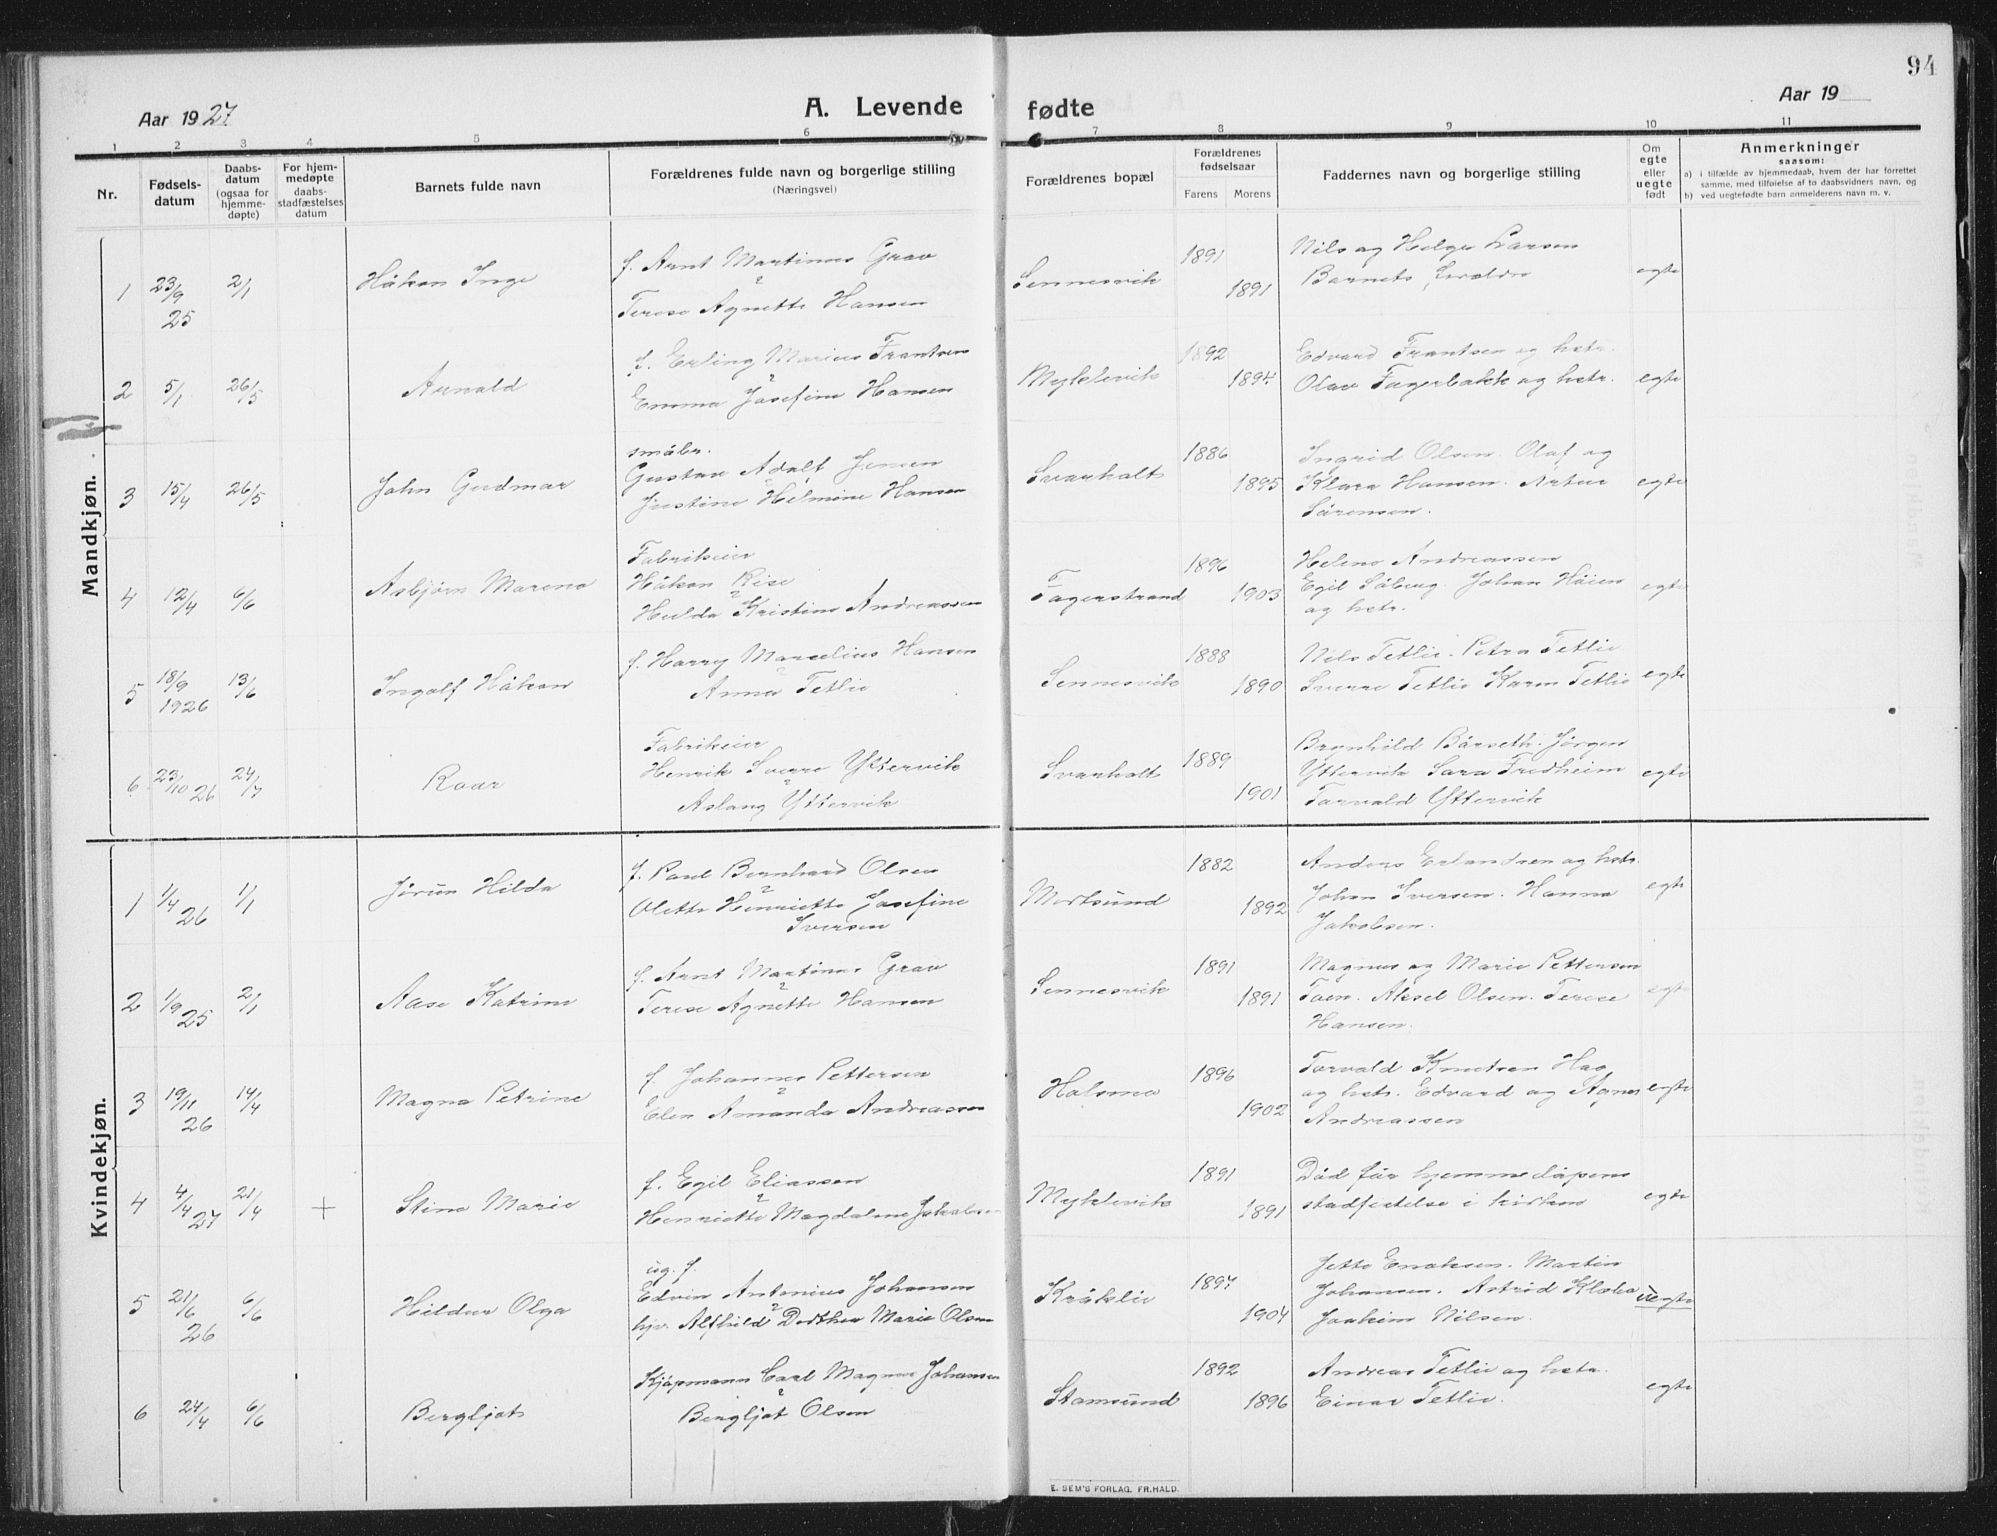 94
Aar 1927
A. Levende
fødte
Aar 19
1 2 3 4 5 6 7 8 9 10 11
Nr.
Fødsels-
datum
Daabs-
datum
(ogsaa for
hjemme-
døpte)
For hjem-
medøpte
daabs-
stadfæstelses
datum
Barnets fulde navn
Forældrenes fulde navn og borgerlige stilling
(Næringsvei)
Forældrenes bopæl
Forældrenes
fødselsaar
Farens Morens
Faddernes navn og borgerlige stilling
Om
egte
eller
uegte
født
Anmerkninger
saasom:
a) i tilfælde av hjemmedaab, hvem der har forrettet
samme, med tilføielse af to daabsvidners navn, og
b) ved uegtefødte barn anmelderens navn m. v.
Mandkjøn.
1 23/9 25 2/1 Håkon Inge
f. Arnt Martinus Grav
2
Terese Agnette Hansen
Sennesvik 1891 1891
Nils og Helga Larsen
Barnets foreldre
egte
2 5/1 26/5 Arnold
f. Erling Marius Frantsen
2
Emma Josefine Hansen
Myklevik 1892 1894
Edvard Frantsen og hstr.
Olav Fagerbakk og hstr.
egte
3 15/4 26/5 John Gudmar
småbr.
Gustav Adolf Jensen
Justine Helmine Hansen
Svarholt 1886 1895
Ingrid Olsen. Olaf og
Klara Hansen. Artur
Sørensen.
egte
4 12/4 6/6 Asbjørn Mareno
Fabrikeier
Håkon Rise
2
Hulda Kristine Andreassen
Fagerstrand 1896 1903
Helene Andreassen
Egil Söberg. Johan Höien
og hstr.
egte
5 18/9 1926 13/6 Ingolf Håkon
f. Harry Marselius Hansen
2
Anna Tetlie
Sennesvik 1888 1890
Nils Tetlie. Petra Tetlie
Sverre Tetlie Karen Tetlie
egte
6 23/10 26 24/7 Roar
Fabrikeier
Henrik Sverre Yttervik
2
Aslaug Yttervik
Svarholt 1889 1901
Brynhild Bårseth. Jörgen
Yttervik Sara Fredheim
Torvald Yttervik
egte
Kvindekjøn.
1 1/4 26 1/1 Jörun Hilda
f. Paul Bernhard Olsen
2
Olette Henriette Josefine
Iversen
Mortsund 1882 1892
Anders Erlandsen og hstr.
Johan Iversen. Hanna
Jakobsen.
egte
2 1/9 25 2/1 Aase Katrine
f. Arnt Martinus Grav
2
Terese Agnette Hansen
Sennesvik 1891 1891
Magnus og Marie Pettersen
Toen. Aksel Olsen. Terese
Hansen.
egte
3 19/11 26 14/4 Magna Petrine
f. Johannes Pettersen
2
Elen Amanda Andreassen
Holsmo 1896 1902
Torvald Knutsen Hag
og hstr. Edvard og Agnes
Andreassen
egte
4 4/4 27 21/4 + Stina Marie
f. Egil Eliassen
2
Henriette Magdalene Jakobsen
Myklevik 1891 1891
Död för hjemmedåpens
stadfestelse i kirken
egte
5 21/6 26 6/6 Hildur Olga
ug. f.
Edvin Antonius Johansen
2
hjv. Alfhild Dorthea Marie Olsen
Kråklie 1897 1904
Jette Enoksen. Martin
Johansen. Astrid Klobo
Joakim Nilsen.
uegte
6 24/4 6/6 Bergljot
Kjöpmann Carl Magnus Johansen
2
Bergljot Olsen
Stamsund 1892 1896
Andreas Tetlie og hstr.
Einar Tetlie.
egte
E. SEM'S FORLAG, FR.HALD.